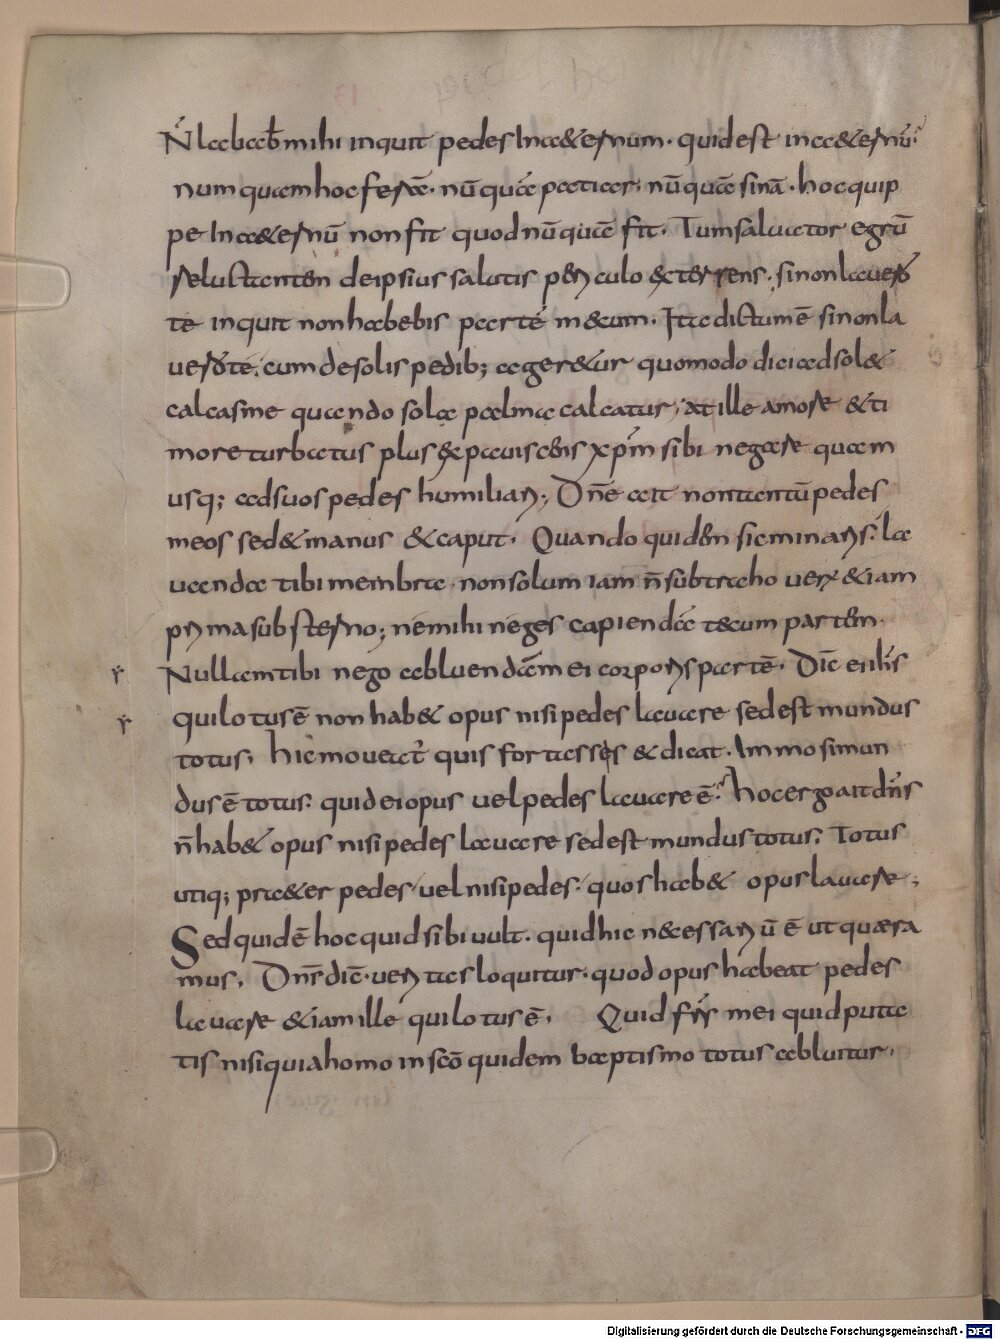 N̄ lababꝉ mihi inquit pedes In aeternum · quid est in aeternū·
num quam hoc ferā · nū quā patiar · nū quā sinā · hoc quip
pe In aeternū non fit quod nū quā fit · Tum saluator egrū
reluctantem de ipsius salutis periculo exterrens · si non lauero
te inquit non habebis parte mecum · Ita dictum ē si non la
uero te · cum de solis pedib; ageretur quomodo dici adsolet
calcas me quando sola palma calcatur · at ille amore & ti
more turbatus plus expauiscens xp̄m sibi negare quam
usq; ad suos pedes humiliari · Dn̄e ait non tantū pedes
meos sed & manus & caput · Quando quidem sic minaris · la
uanda tibi membra · non solum iam n̄ subtraho uerū & iam
prima substerno; ne mihi neges capiendā tecum partem ·
Nullam tibi nego abluendam mei corporis partē · Dic̄ ei ih̄s
qui lotus ē non hab& opus nisi pedes lauare sed est mundus
totus · hic mouetur quis fortasses & dicat · Immo si mun
dus ē totus · quid ei opus uel pedes lauare ē · hoc ergo ait dn̄s
n̄ hab& opus nisi pedes lauare sed est mundus totus · Totus
utiq; praeter pedes uel nisi pedes · quos hab& opus lauare ;
Sed quid ē hoc quid sibi uult · quid hic necessariū ē ut quaera
mus · Dn̄s dic̄ · ueritas loquitur · quod opus habeat pedes
lauare & iam ille qui lotus ē · Quid fr̄s mei quid puta
tis nisi quia homo in sc̄o quidem baptismo totus abluitur ·
Digitalisierung gefördert durch die Deutsche Forschungsgemeinschaft - DFG